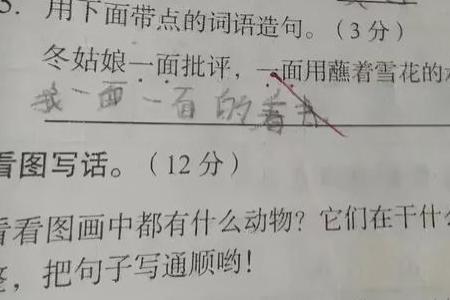 5. 用下面带点的词语造句。(3分)
冬姑娘一面批评，一面用蘸着雪花的
我一面一面的看书
看图写话。(12分)
看看图画中都有什么动物？它们在干什么
，把句子写通顺哟！